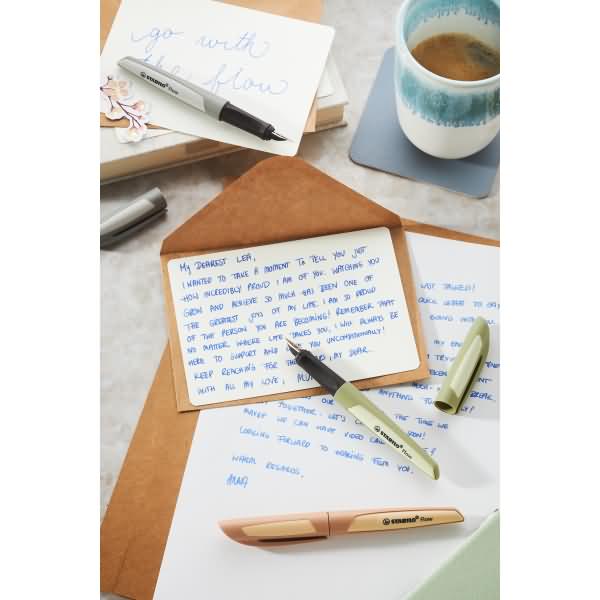 go with
the flow
STABILO® Flow
My DEAREST LEA,
I WANTED TO TAKE A MOMENT TO TELL YOU JUST
HOW INCREDIBLY PROUD I AM OF YOU. WATCHING YOU
GROW AND ACHIEVE SO MUCH HAS BEEN ONE OF
THE GREATEST JOYS OF MY LIFE. I AM SO PROUD
OF THE PERSON YOU ARE BECOMING! REMEMBER THAT
NO MATTER WHERE LIFE TAKES YOU, I WILL ALWAYS BE
HERE TO SUPPORT AND YOU UNCONDITIONALLY!
KEEP REACHING FOR THE , MY DEAR...
WITH ALL MY LOVE,
OUR
TOGETHER. LET'S THE TIME WE
MAYBE WE CAN HAVE VIDEO
LOOKING FORWARD TO HEARING FROM YOU.
WARM REGARDS,
ANNA
STABILO® Flow
STABILO® Flow